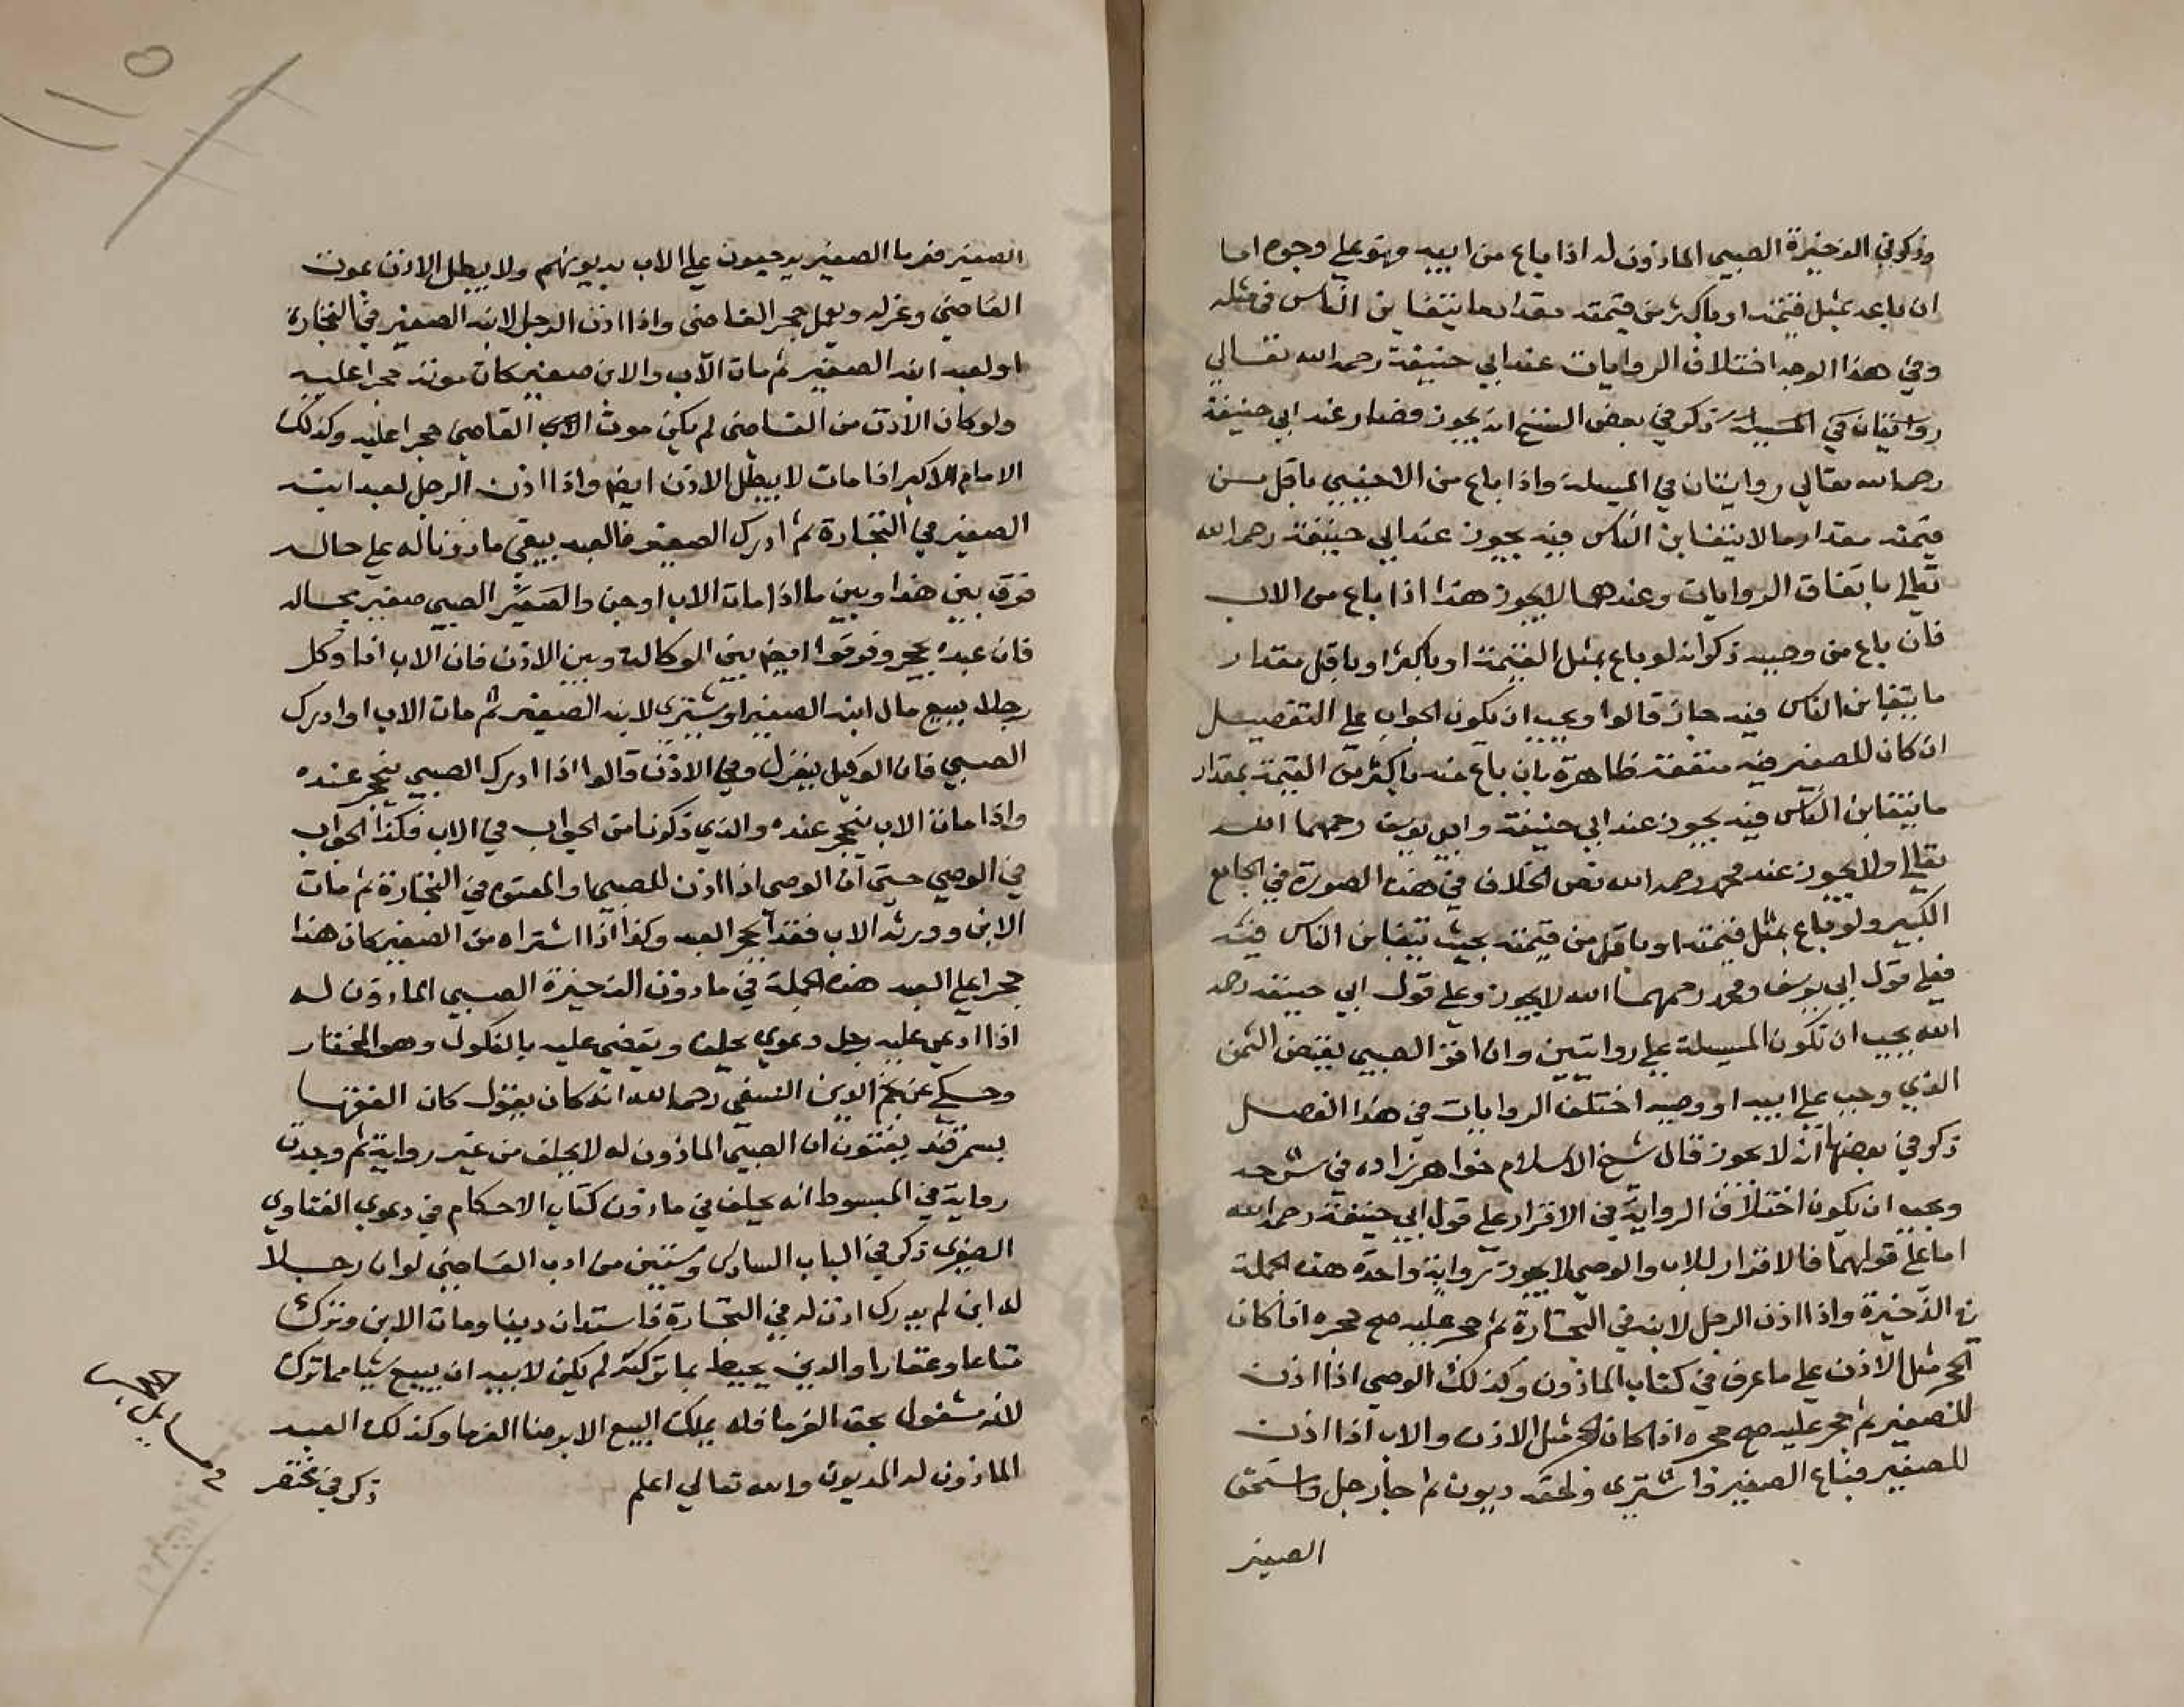 وذكر في الذخيرة الصبي الماذون له اذا باع من ابيه وهو علي وجوه اما
ان باعه بمثل قيمته او باكثر من قيمته مقدار ما يتغابن الناس في مثله
وفي هذا الوجه اختلاف الروايات عند ابي حنيفة رحمه الله تعالي
روايتان في المسيلة ذكر في بعض النسخ انه يجوز فصار عند ابي حنيفة
رحمه الله تعالي روايتان في المسيلة واذا باع من الاجنبي باقل من
قيمته مقدار ما لا يتغابن الناس فيه يجوز عند ابي حنيفة رحمه الله
تعالي باتفاق الروايات وعندهما لا يجوز هذا اذا باع من الاب
فان باع من وصيه ذكر انه لو باع بمثل القيمة او باكثر او باقل مقدار
ما يتغابن الناس فيه جاز قالوا ويجب ان يكون الجواب علي التفصيل
ان كان للصغير فيه منفعة ظاهرة بان باع منه باكثر من القيمة بمقدار
ما يتغابن الناس فيه يجوز عند ابي حنيفة وابي يوسف رحمهما الله
تعالي ولا يجوز عند محمد رحمه الله نص الخلاف في هذه الصورة في الجامع
الكبير ولو باع بمثل قيمته او باقل من قيمته بحيث يتغابن الناس فيه
فعلي قول ابي يوسف ومحمد رحمهما الله لا يجوز وعلي قول ابي حنيفة رحمه
الله يجب ان تكون المسيلة علي روايتين وان اقر الصبي بقبض الثمن
الذي وجب علي ابيه او وصيه اختلف الروايات في هذا الفصل
ذكر في بعضها انه لا يجوز قال شيخ الاسلام خواهر زاده في شرحه
ويجب ان يكون اختلاف الرواية في الاقرار علي قول ابي حنيفة رحمه الله
اما علي قولهما فالاقرار للاب والوصي لا يجوز رواية واحدة هذه الجملة
في الذخيرة واذا اذن الرجل لابنه في التجارة ثم حجر عليه صح حجره اذا كان
الحجر مثل الاذن علي ما عرف في كتاب الماذون وكذلك الوصي اذا اذن
للصغير ثم حجر عليه صح حجره اذا كان الحجر مثل الاذن والاب اذا اذن
للصغير فباع الصغير واشتري ولحقه ديون ثم جا رجل واستحق
الصغير
الصغير فغرما الصغير يرجعون علي الاب بديونهم ولا يبطل الاذن بموت
القاضي وعزله ويعمل حجر القاضي واذا اذن الرجل لابنه الصغير في التجارة
او لعبد ابنه الصغير ثم مات الاب والابن صغير كان موته حجرا عليه
ولو كان الاذن من القاضي لم يكن موت القاضي حجرا عليه وكذلك
الامام الاكبر اذا مات لا يبطل الاذن ايضا واذا اذن الرجل لعبد ابنه
الصغير في التجارة ثم ادرك الصغير فالعبد يبقي ماذونا له علي حاله
فرق بين هذا وبين ما اذا مات الاب او جن والصغير الصبي صغير بحاله
فان عبده يحجر وفرقوا ايضا بين الوكالة وبين الاذن فان الاب اذا وكل
رجلا ببيع مال ابنه الصغير او يشتري لابنه الصغير ثم مات الاب او ادرك
الصبي فان الوكيل ينعزل وفي الاذن قالوا اذا ادرك الصبي ينحجر عنده
واذا مات الاب ينحجر عنده والذي ذكرنا من الجواب في الاب فكذا الجواب
في الوصي حتي ان الوصي اذا اذن للصبي او المعتوه في التجارة ثم مات
الابن وورثه الاب فقد حجر العبد وكذا اذا اشتراه من الصغير كان هذا
حجرا علي العبد هذه الجملة في ماذون الذخيرة الصبي الماذون له
اذا ادعي عليه رجل دعوي يحلف ويقضي عليه بالنكول وهو المختار
وحكي عن نجم الدين النسفي رحمه الله انه كان يقول كان الفقها
بسمرقند يفتون ان الصبي الماذون له لا يحلف من غير رواية ثم وجدت
رواية في المبسوط انه يحلف في ماذون كتاب الاحكام في دعوي الفتاوي
الصغري ذكر في الباب السادس وستين من ادب القاضي لو ان رجلا
له ابن لم يدرك اذن له في التجارة فاستدان دينا ومات الابن وترك
متاعا وعقارا والدين يحيط بما تركه لم يكن لابيه ان يبيع شيا مما ترك
لانه مشغول بحق الغرما فله يملك البيع الا برضا الغرما وكذلك العبد
الماذون له المديون والله تعالي اعلم ذكر في مختصر
١١٥